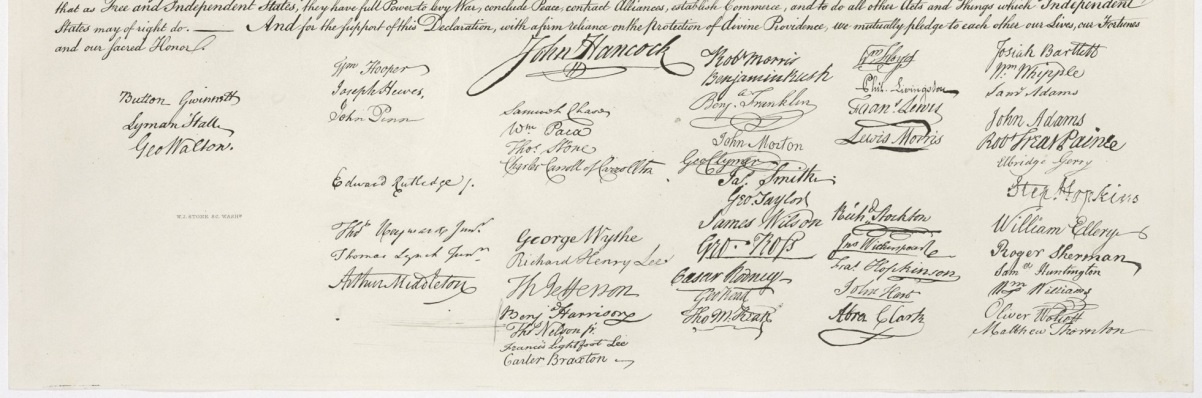 that as Free and Independent States, they have full Power to levy War, conclude Peace, contract Alliances, establish Commerce, and to do all other Acts and Things which Independent
States may of right do. — And for the support of this Declaration, with a firm reliance on the protection of divine Providence, we mutually pledge to each other our Lives, our Fortunes
and our sacred Honor.
Button Gwinnett
Lyman Hall
Geo Walton.
W.J. STONE SC. WASHN
Wm Hooper
Joseph Hewes,
John Penn
Edward Rutledge /.
Thos Heyward Junr.
Thomas Lynch Junr.
Arthur Middleton
John Hancock
Samuel Chase
Wm. Paca
Thos. Stone
Charles Carroll of Carrollton
George Wythe
Richard Henry Lee
Th Jefferson
Benj Harrison
Thos Nelson jr.
Francis Lightfoot Lee
Carter Braxton
Robt Morris
Benjamin Rush
Benj. Franklin
John Morton
Geo Clymer
Jas. Smith.
Geo. Taylor
James Wilson
Geo. Ross
Caesar Rodney
Geo Read
Tho M:Kean
Wm Floyd
Phil. Livingston
Frans. Lewis
Lewis Morris
Richd. Stockton
Jno Witherspoon
Fras. Hopkinson
John Hart
Abra Clark
Josiah Bartlett
Wm. Whipple
Saml Adams
John Adams
Robt Treat Paine
Elbridge Gerry
Step. Hopkins
William Ellery
Roger Sherman
Saml Huntington
Wm Williams
Oliver Wolcott
Matthew Thornton